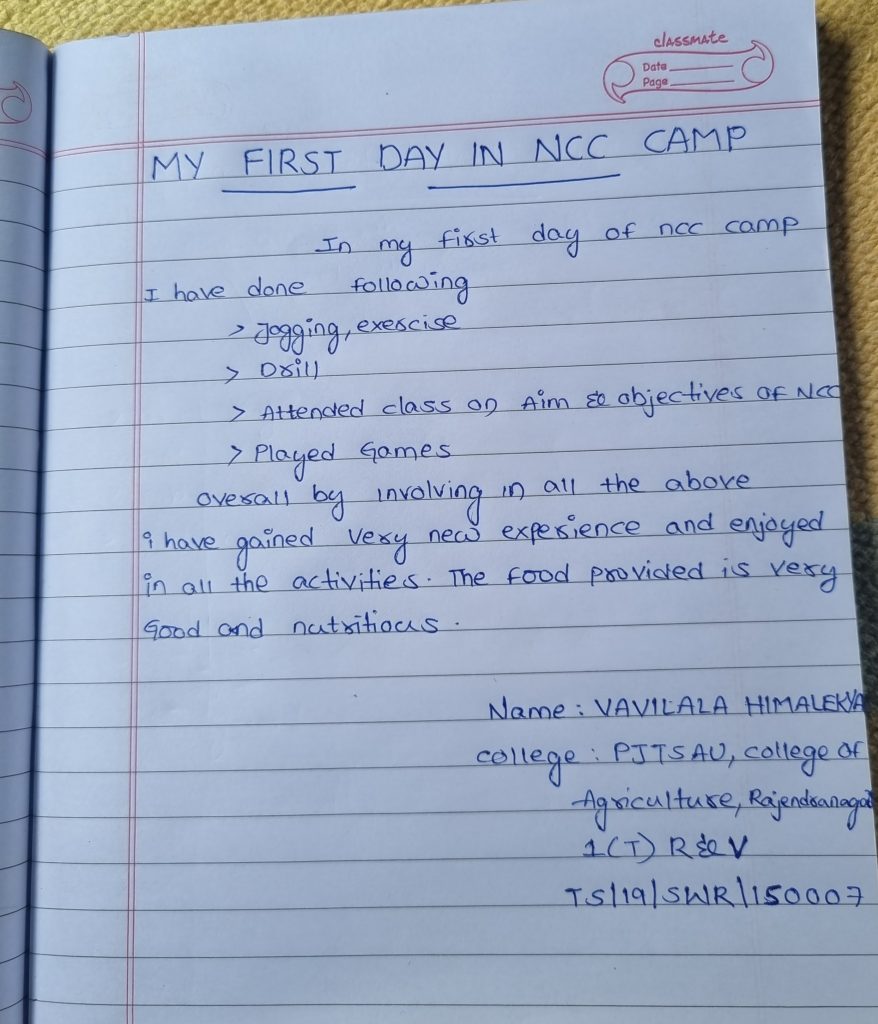 classmate
Date
Page
MY FIRST DAY IN NCC CAMP
In my first day of ncc camp
I have done following
> Jogging, exercise
> Drill
> Attended class on Aim & objectives of NCC
> Played Games
overall by involving in all the above
I have gained very new experience and enjoyed
in all the activities. The food provided is very
Good and nutritious.
Name : VAVILALA HIMALEKYA
college : PJTSAU, college of
Agriculture, Rajendranagar
1(T) R & V
TS/19/SWR/150007